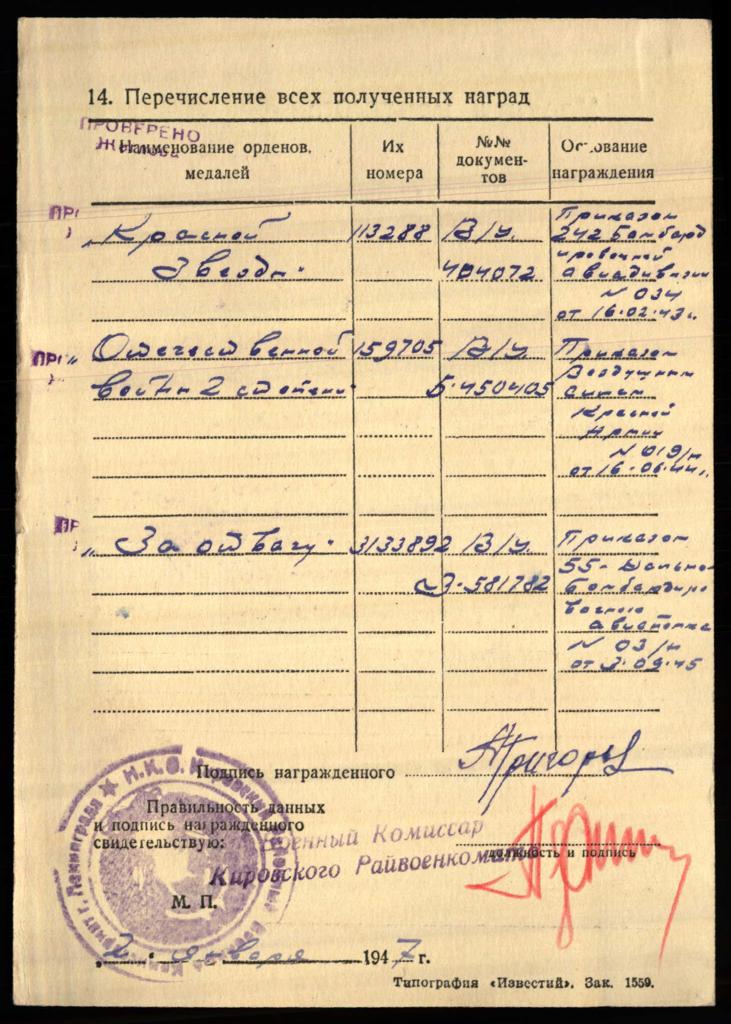 14. Перечисление всех полученных наград
ПРОВЕРЕНО
Наименование орденов, медалей
Их номера
№№ документов
Основание награждения
„Красной 113288 В/у. Приказом
Звезды" 404072 242 Бомбард
ировочной
Авиадивизии
N 03/н
от 16.02.43г.
„Отечественной 159705 В/у. Приказом
войны 2 степени" Б.450405 Воздушным
силам
Красной
Армии
N 019/н
от 16.06.44г.
„За отвагу" 3133892 В/у. Приказом
З.581782 55- Дально
Бомбардиро
вочного
Авиаполка
N 03/н
от 3.09.45
Подпись награжденного
Правильность данных
и подпись награжденного
свидетельствую:
Военный Комиссар
Кировского Райвоенкомата
должность и подпись
М. П.
„2" января 1947 г.
Типография «Известий». Зак. 1559.